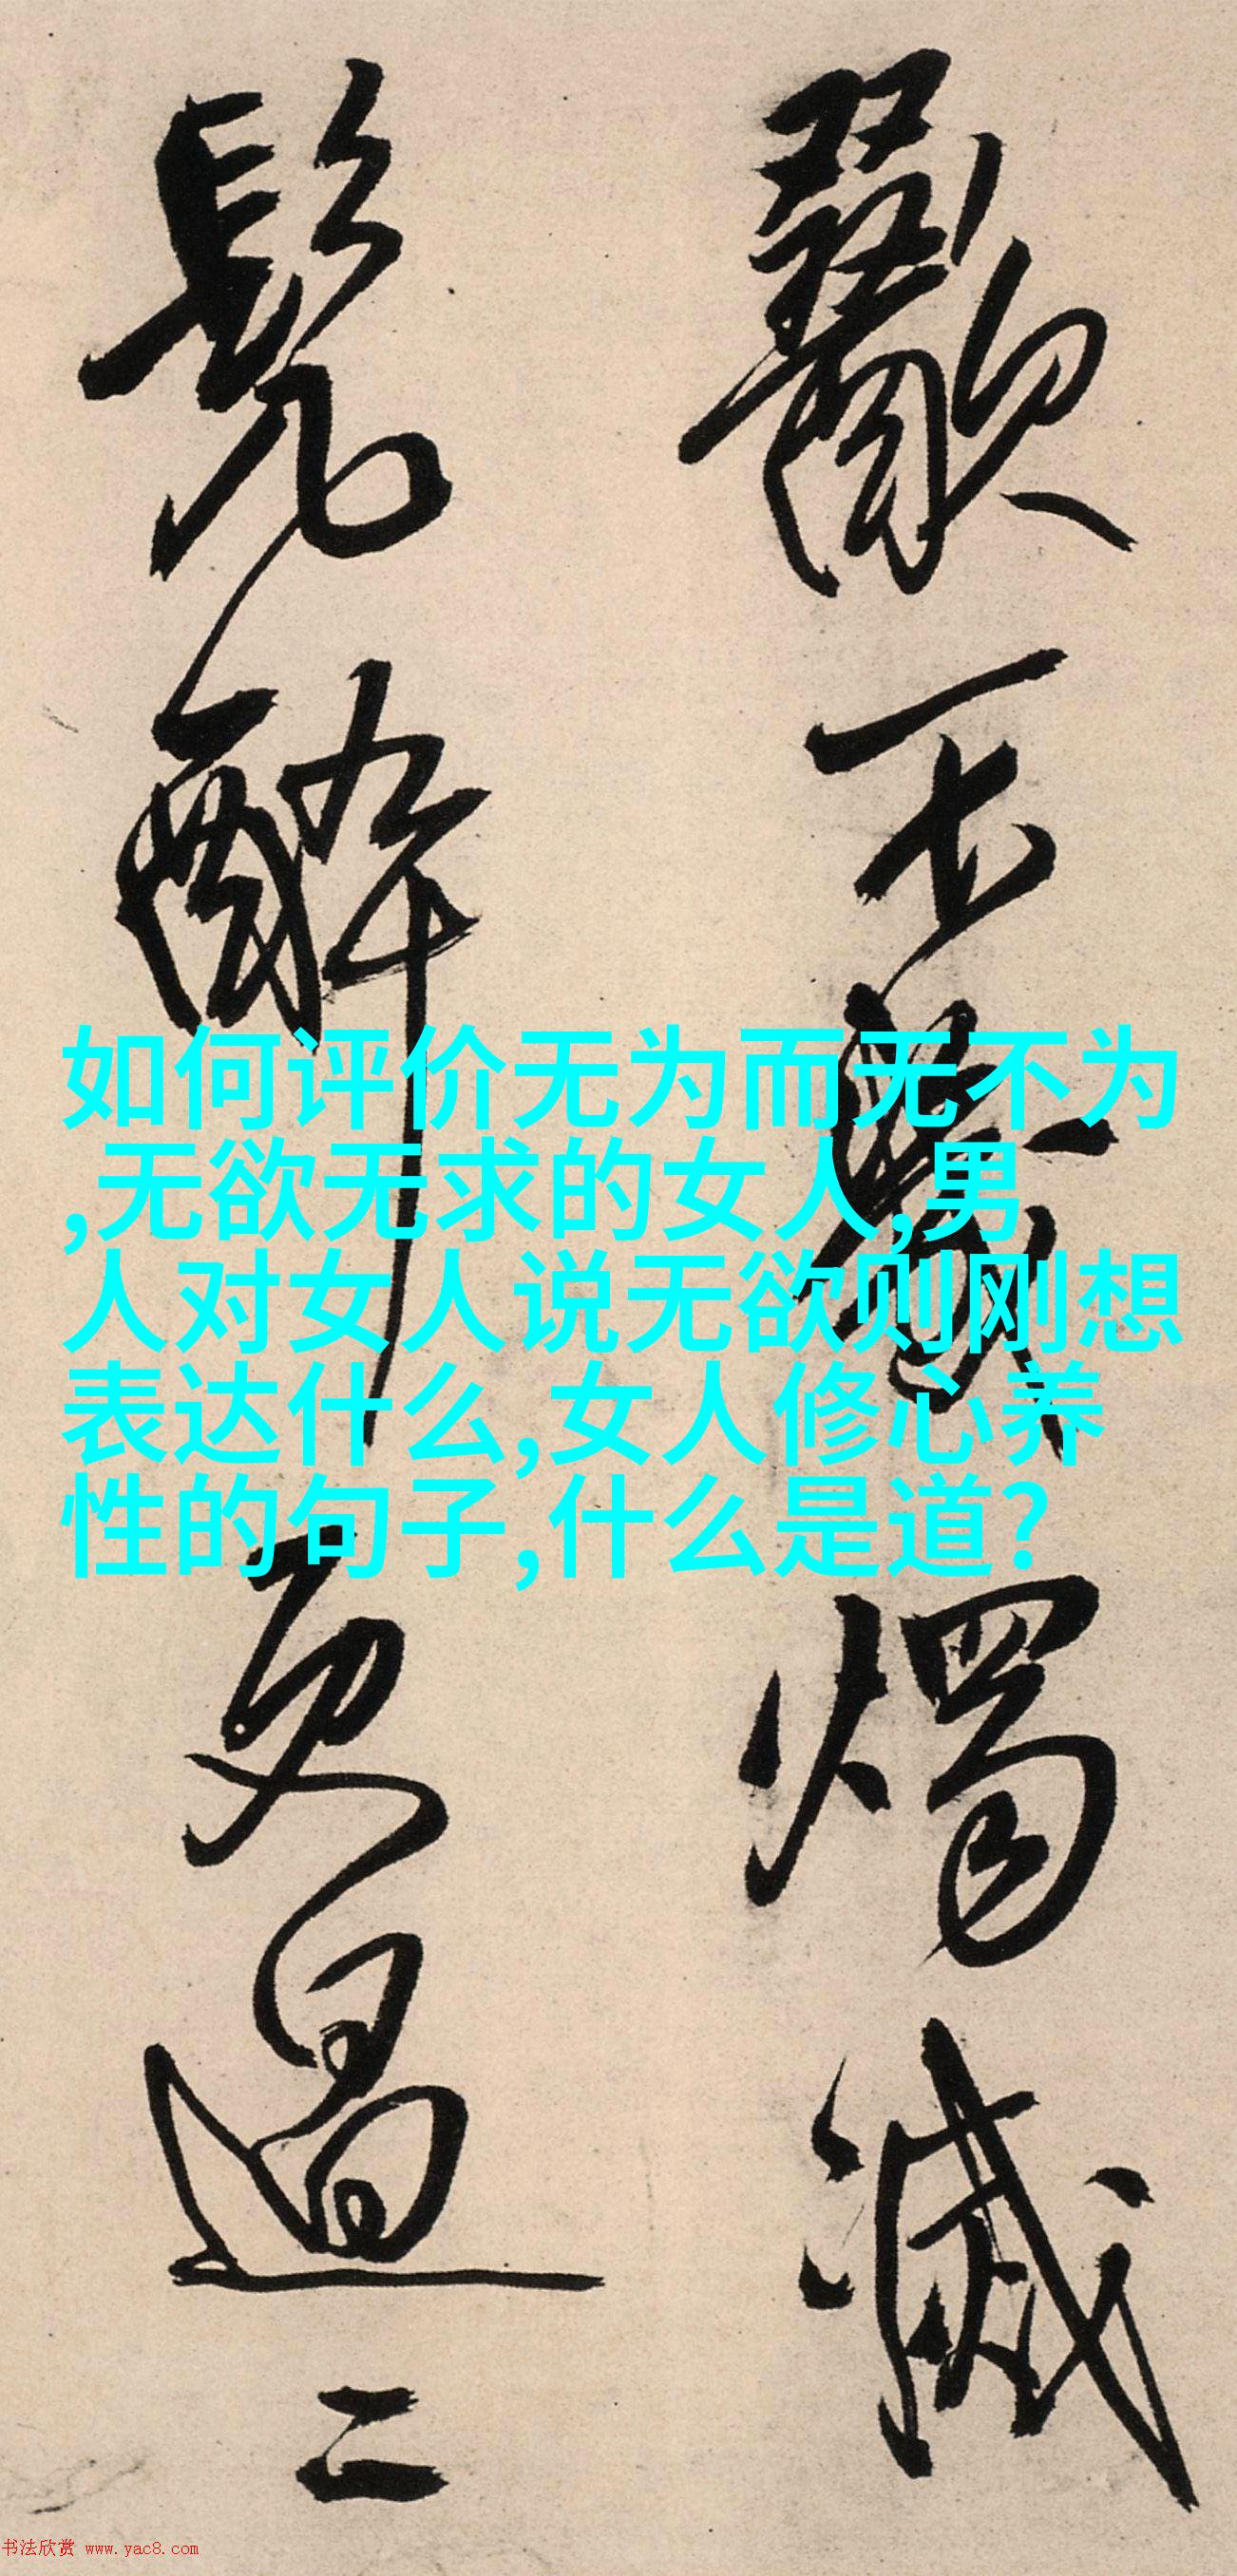 歠不燭滅
髡醉更過二
如何评价无为而无不为
,无欲无求的女人,男
人对女人说无欲则刚想
表达什么,女人修心养
性的句子,什么是道?
书法欣赏 www.yac8.com